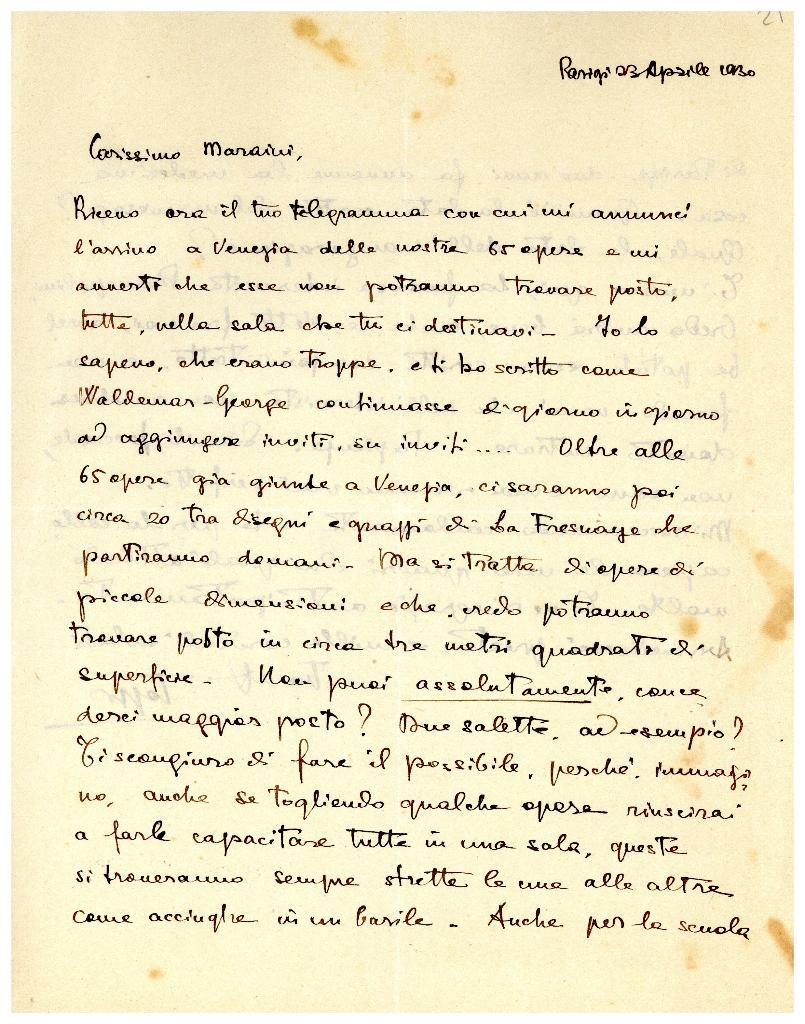 21
Parigi 23 Aprile 1930
Carissimo Maraini,
Ricevo ora il tuo telegramma con cui mi annunci
l'arrivo a Venezia delle nostre 65 opere e mi
avverti che esse non potranno trovare posto,
tutte, nella sala che tu ci destinavi - Io lo
sapevo, che erano troppe, e ti ho scritto come
Waldemar-George continuasse di giorno in giorno
ad aggiungere inviti, su inviti.... Oltre alle
65 opere già giunte a Venezia, ci saranno poi
circa 20 tra disegni e guazzi di La Fresnaye che
partiranno domani - Ma si tratta di opere di
piccole dimensioni e che, credo potranno
trovare posto in circa tre metri quadrati di
superficie - Non puoi assolutamente, conce
derci maggior posto? Due salette, ad esempio?
Ti scongiuro di fare il possibile, perché, immagi
no, anche se togliendo qualche opera riuscirai
a farle capacitare tutte in una sala, queste
si troveranno sempre strette le une alle altre
come acciughe in un barile - Anche per la scuola